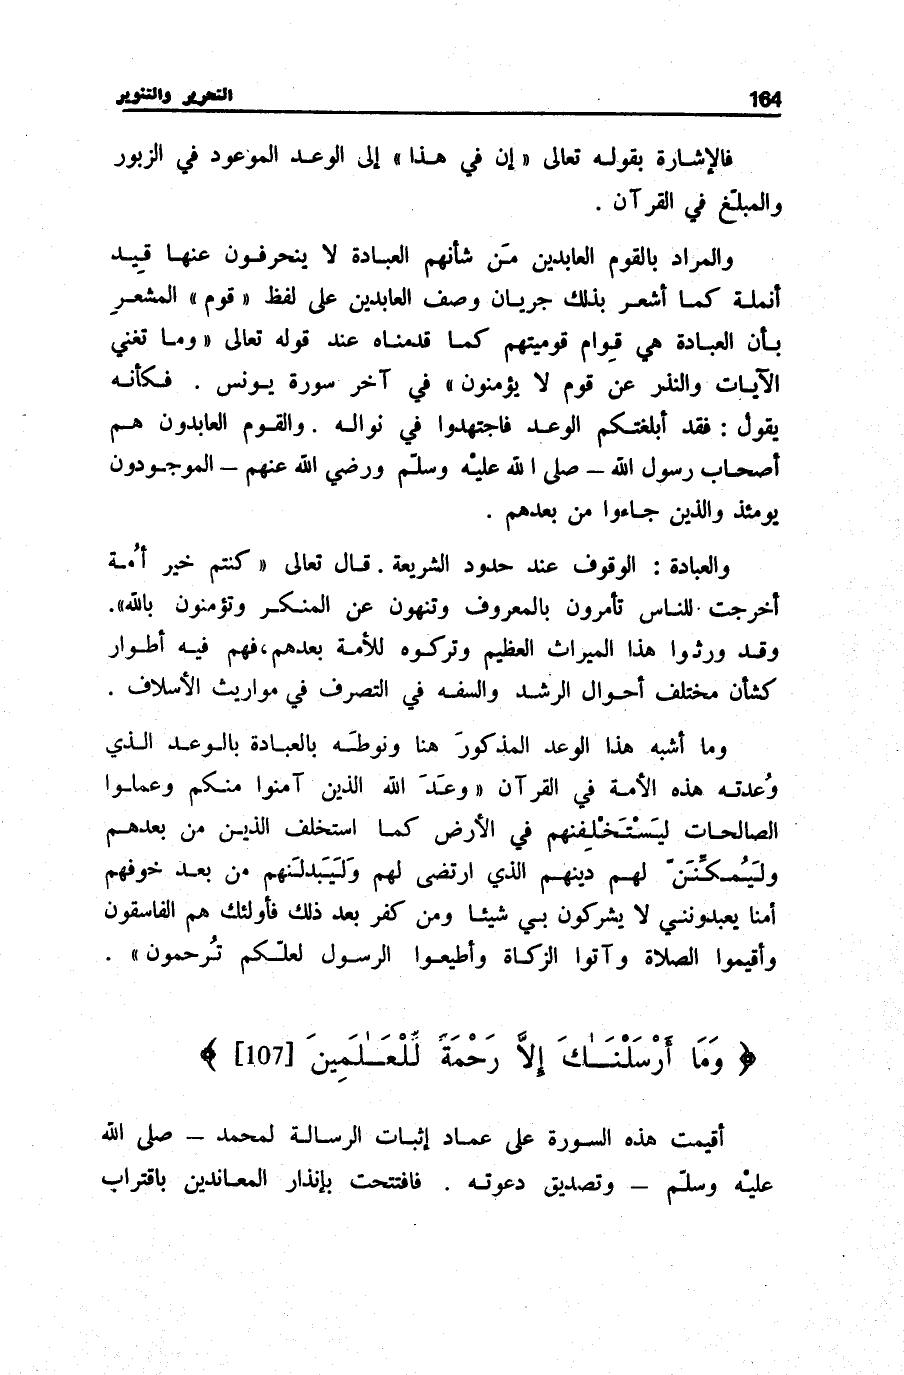 164
التحرير والتنوير
فالإشارة بقوله تعالى « إن في هذا » إلى الوعد الموعود في الزبور
والمبلّغ في القرآن .
والمراد بالقوم العابدين مَن شأنهم العبادة لا ينحرفون عنها قِيد
أنملة كما أشعر بذلك جريان وصف العابدين على لفظ « قوم » المشعرِ
بأن العبادة هي قِوام قوميتهم كما قدمناه عند قوله تعالى « وما تغني
الآيات والنذر عن قوم لا يؤمنون » في آخر سورة يونس . فكأنه
يقول : فقد أبلغتكم الوعد فاجتهدوا في نواله . والقوم العابدون هم
أصحاب رسول الله – صلى الله عليْه وسلّم ورضي الله عنهم – الموجودون
يومئذ والذين جاءوا من بعدهم .
والعبادة : الوقوف عند حدود الشريعة . قال تعالى « كنتم خير أُمة
أخرجت للناس تأمرون بالمعروف وتنهون عن المنكر وتؤمنون بالله».
وقد ورثوا هذا الميراث العظيم وتركوه للأمة بعدهم، فهم فيه أطوار
كشأن مختلف أحوال الرشد والسفه في التصرف في مواريث الأسلاف .
وما أشبه هذا الوعد المذكورَ هنا ونوطَه بالعبادة بالوعد الذي
وُعدته هذه الأمة في القرآن « وعَدَ الله الذين آمنوا منكم وعملوا
الصالحات ليَسْتَخْلِفنهم في الأرض كما استخلف الذين من بعدهم
ولَيُمكِّنَنّ لهم دينهم الذي ارتضى لهم ولَيَبَدلَنهم من بعد خوفهم
أمنا يعبدونني لا يشركون بي شيئا ومن كفر بعد ذلك فأولئك هم الفاسقون
وأقيموا الصلاة وآتوا الزكاة وأطيعوا الرسول لعلّكم تُرحمون » .
﴿ وَمَا أَرْسَلْنَـٰكَ إِلاَّ رَحْمَةً لِّلْعَـٰلَمِينَ [107] ﴾
أقيمت هذه السورة على عماد إثبات الرسالة لمحمد – صلى الله
عليْه وسلّم – وتصديق دعوته . فافتتحت بإنذار المعاندين باقتراب